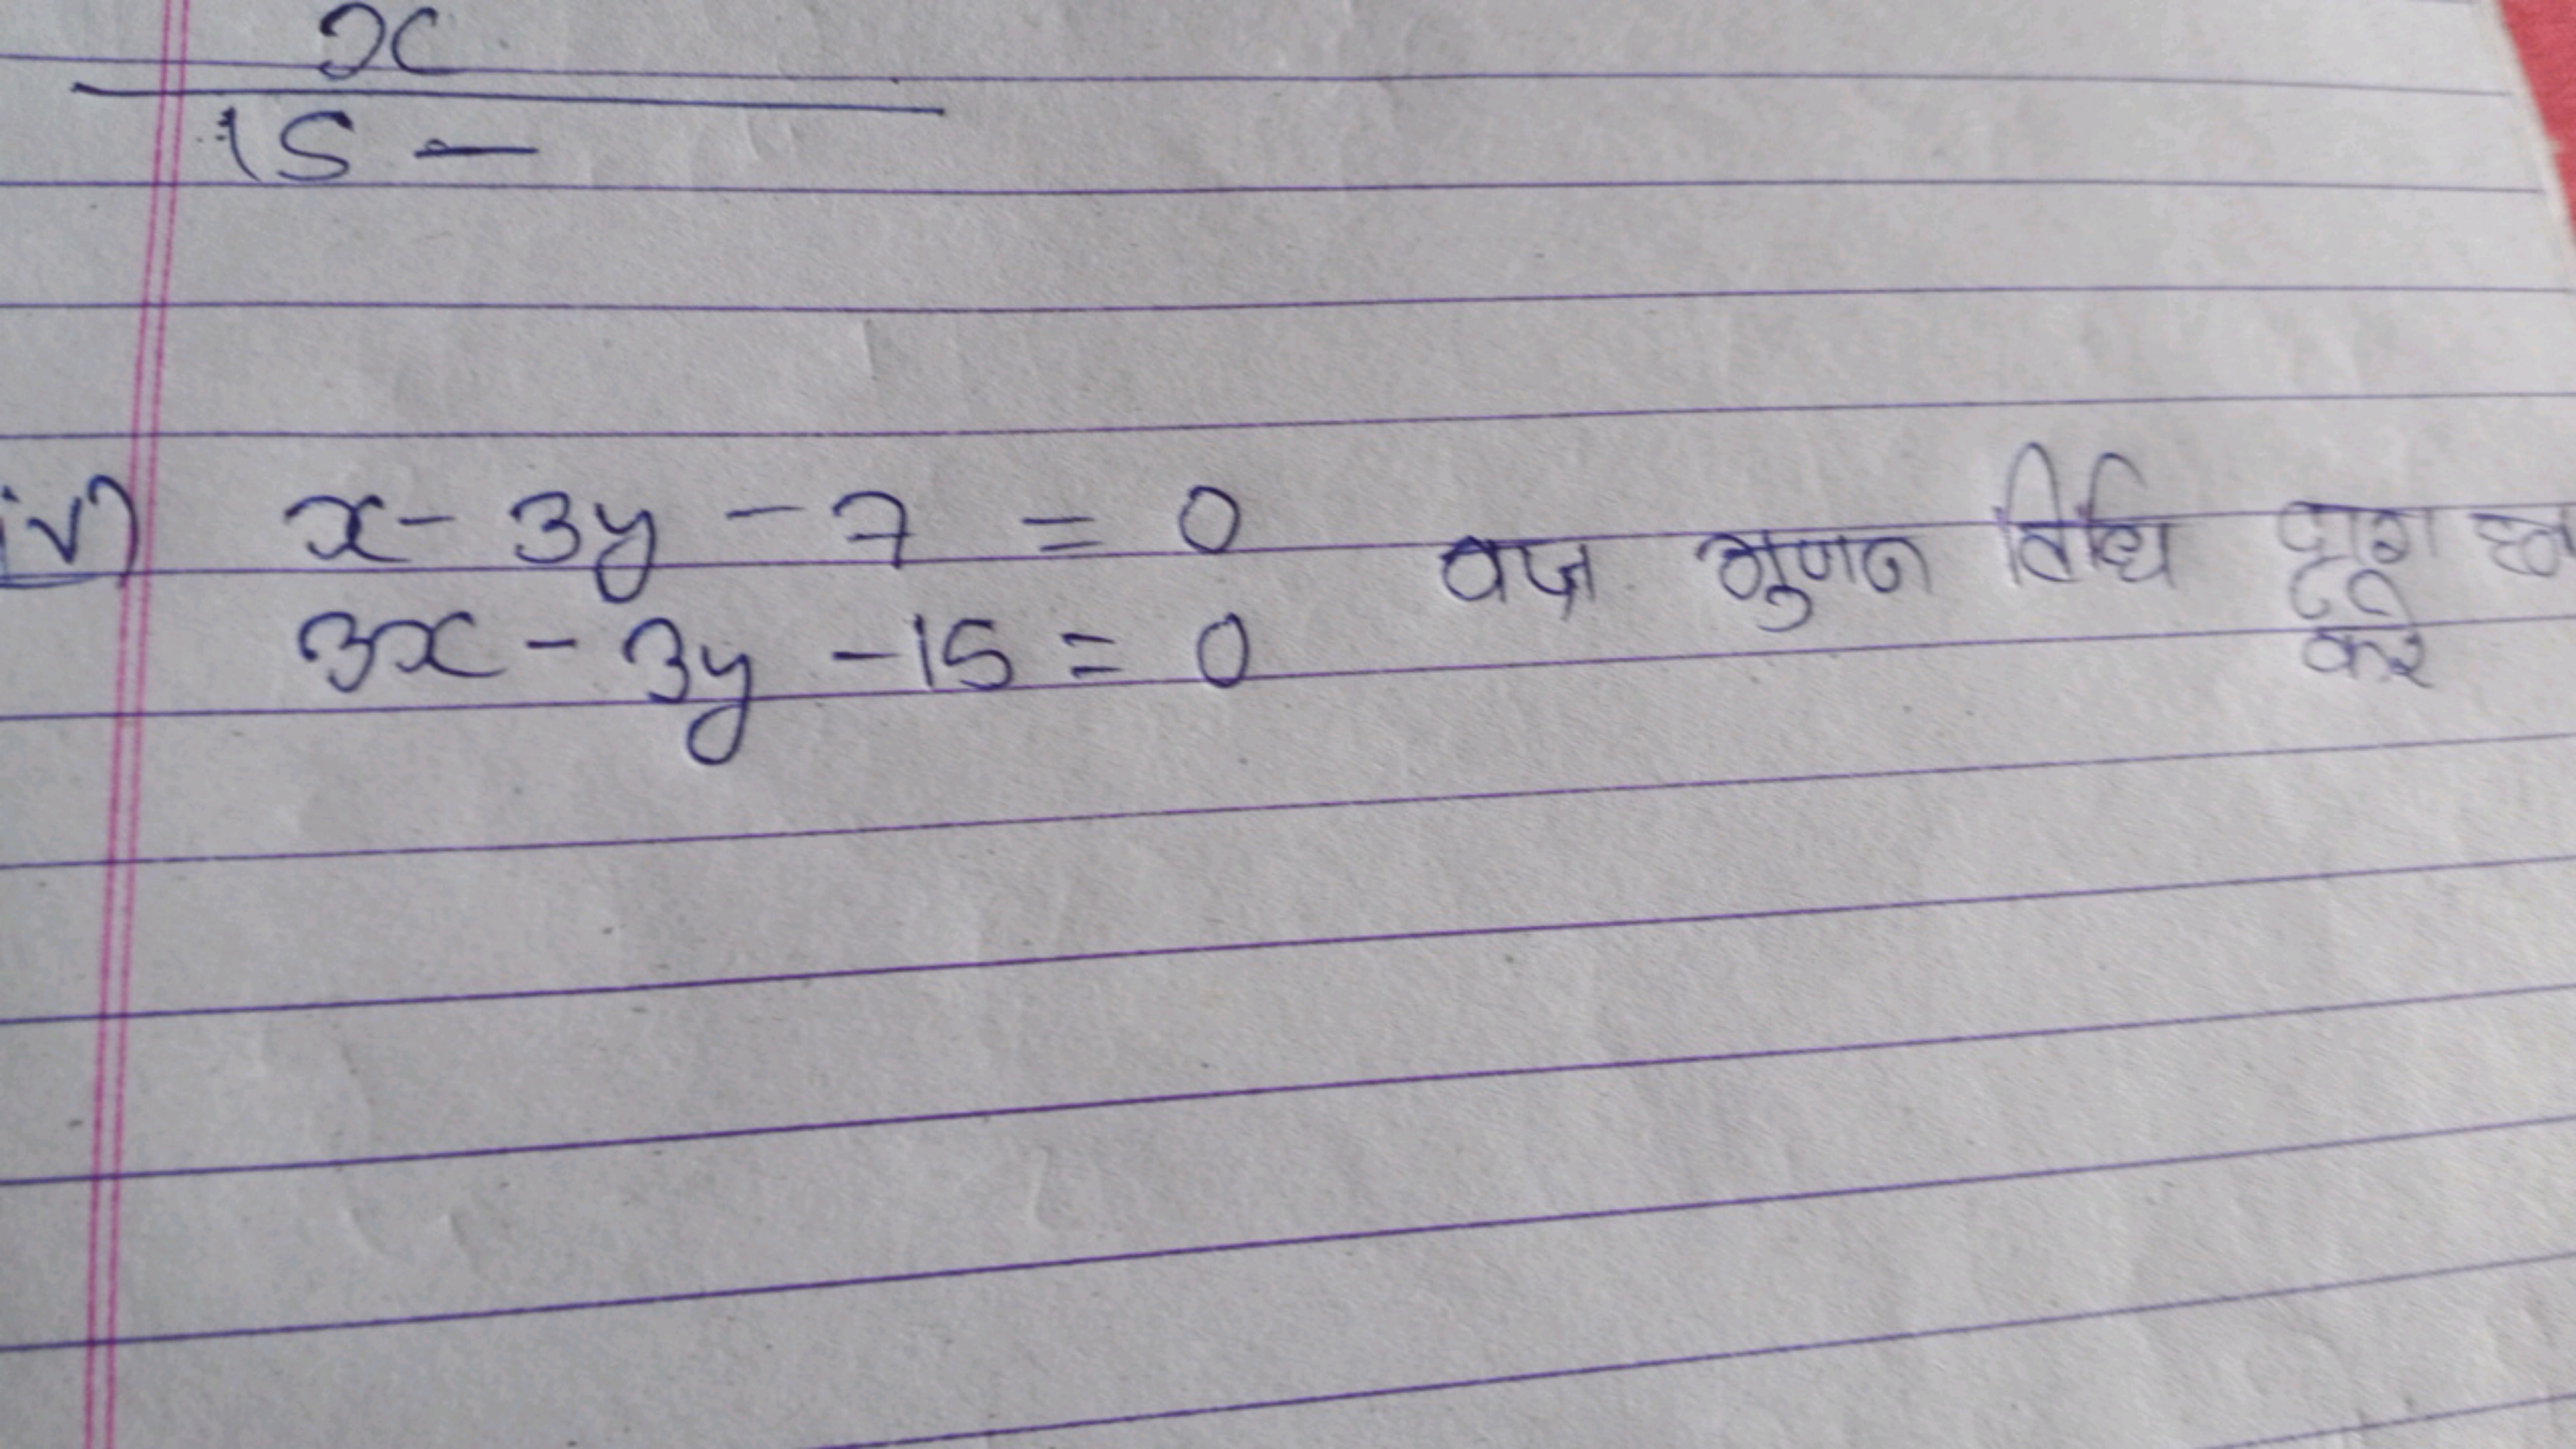 x
15 -
iv) x - 3y - 7 = 0 वज्र गुणन विधि द्वारा
3x - 3y - 15 = 0 करे